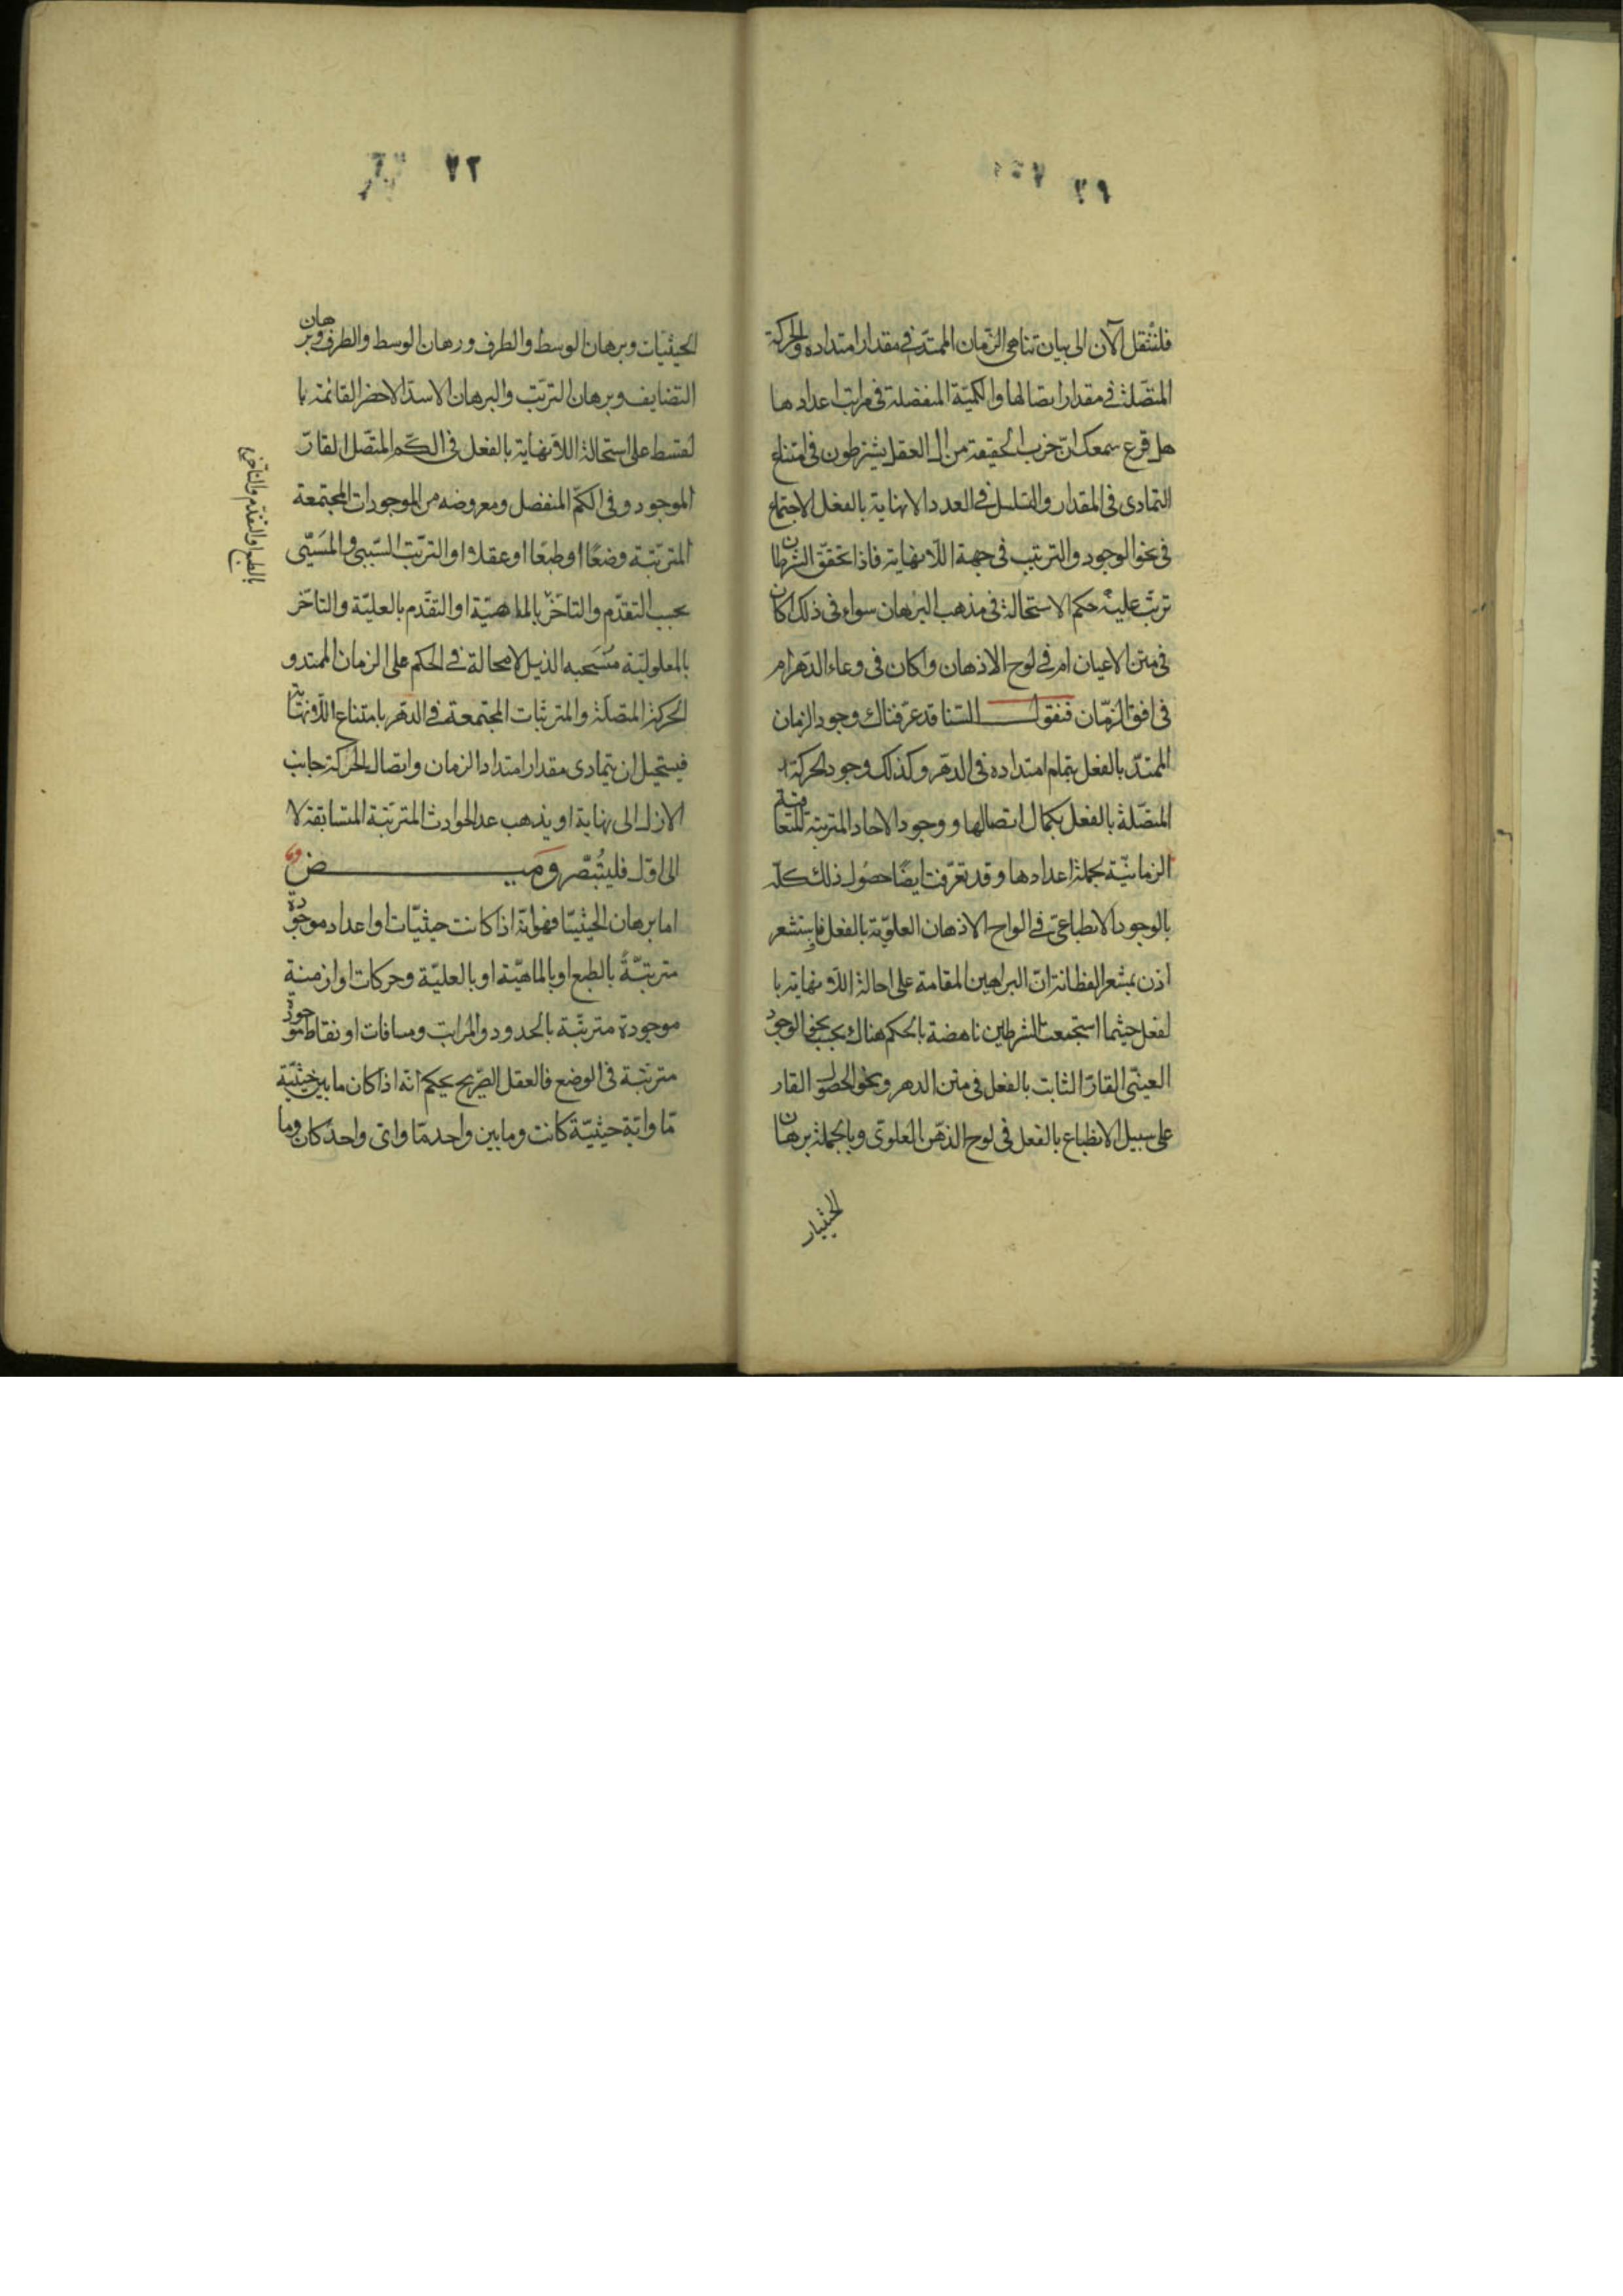 ٢٩
فلننتقل الآن الى بيان تناهى الزمان الممتد فى مقدار امتداده والحركة
المتصلة فى مقدار اتصالها والكمية المنفصلة فى مراتب اعدادها
هل قرع سمعك ان حزب الحقيقة من ال العقل يشترطون فى امتناع
التمادى فى المقدار والتسلسل فى العدد الا نهاية بالفعل الاجتماع
فى نحو الوجود والترتب فى جهة اللانهاية فاذا تحقق الشرطان
ترتب عليه حكم الاستحالة فى مذهب البرهان سواء فى ذلك اكان
فى متن الاعيان ام فى لوح الاذهان واكان فى وعاء الدهر ام
فى افق الزمان فنقول السنا قد عرفناك وجود الزمان
الممتد بالفعل بتمام امتداده فى الدهر وكذلك وجود الحركة
المتصلة بالفعل بكمال اتصالها ووجود الاحاد المترتبة المتعاقبة
الزمانية بجملة اعدادها وقد تعرفت ايضًا حصول ذلك كله
بالوجود الانطباعى فى الواح الاذهان العلوية بالفعل فاستشعر
اذن بمشعر الفطانة ان البراهين المقامة على احالة اللانهاية با
لفعل حيثما استجمعت الشرطين ناهضة بالحكم هناك بحسب نحو الوجود
العينى القار الثابت بالفعل فى متن الدهر ونحو الحصول القار
على سبيل الانطباع بالفعل فى لوح الذهن العلوى وبالجملة برهان
الحيثيات
٧٢
الحيثيات وبرهان الوسط والطرف وبرهان الوسط والطرف وبرهان
التضايف وبرهان الترتب والبرهان الاسد الاخصر القائمة با
لقسط على استحالة اللانهاية بالفعل فى الكم المتصل القار
الموجود وفى الكم المنفصل ومعروضه من الموجودات المجتمعة
المترتبة وضعًا او طبعًا او عقلا او الترتب السببى والمسببى
بحسب التقدم والتاخر بالماهية او التقدم بالعلية والتاخر
بالطبع او التقدم والتاخر
بالمعلولية منسحبه الذيل لا محالة فى الحكم على الزمان الممتد و
الحركة المتصلة والمترتبات المجتمعة فى الدهر بامتناع اللانهاية
فيستحيل ان يتمادى مقدار امتداد الزمان واتصال الحركة جانب
الازل الى نهاية او يذهب عد الحوادث المترتبة المتسابقة لا
الى اول فليتبصر وميض
اما برهان الحيثيات فهو انه اذا كانت حيثيات او اعداد موجودة
مترتبةً بالطبع او بالماهية او بالعلية وحركات او ازمنة
موجودة مترتبة بالحدود والمراتب ومسافات او نقاط موجودة
مترتبة فى الوضع فالعقل الصريح يحكم انه اذا كان ما بين حيثية
ما واية حيثية كانت وما بين واحد ما واى واحد كان وما